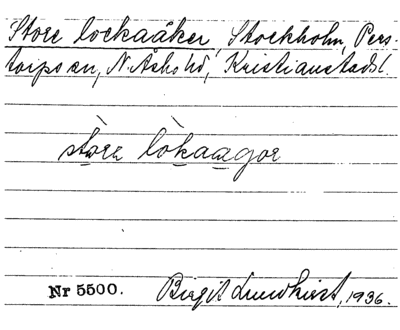 Store lockaåker, Stockholm, Pers-
torps sn, N. Åsbo hd, Kristianstads l.
stòrə lòkaagor
Nr 5500. Birgit Lundkvist, 1936.